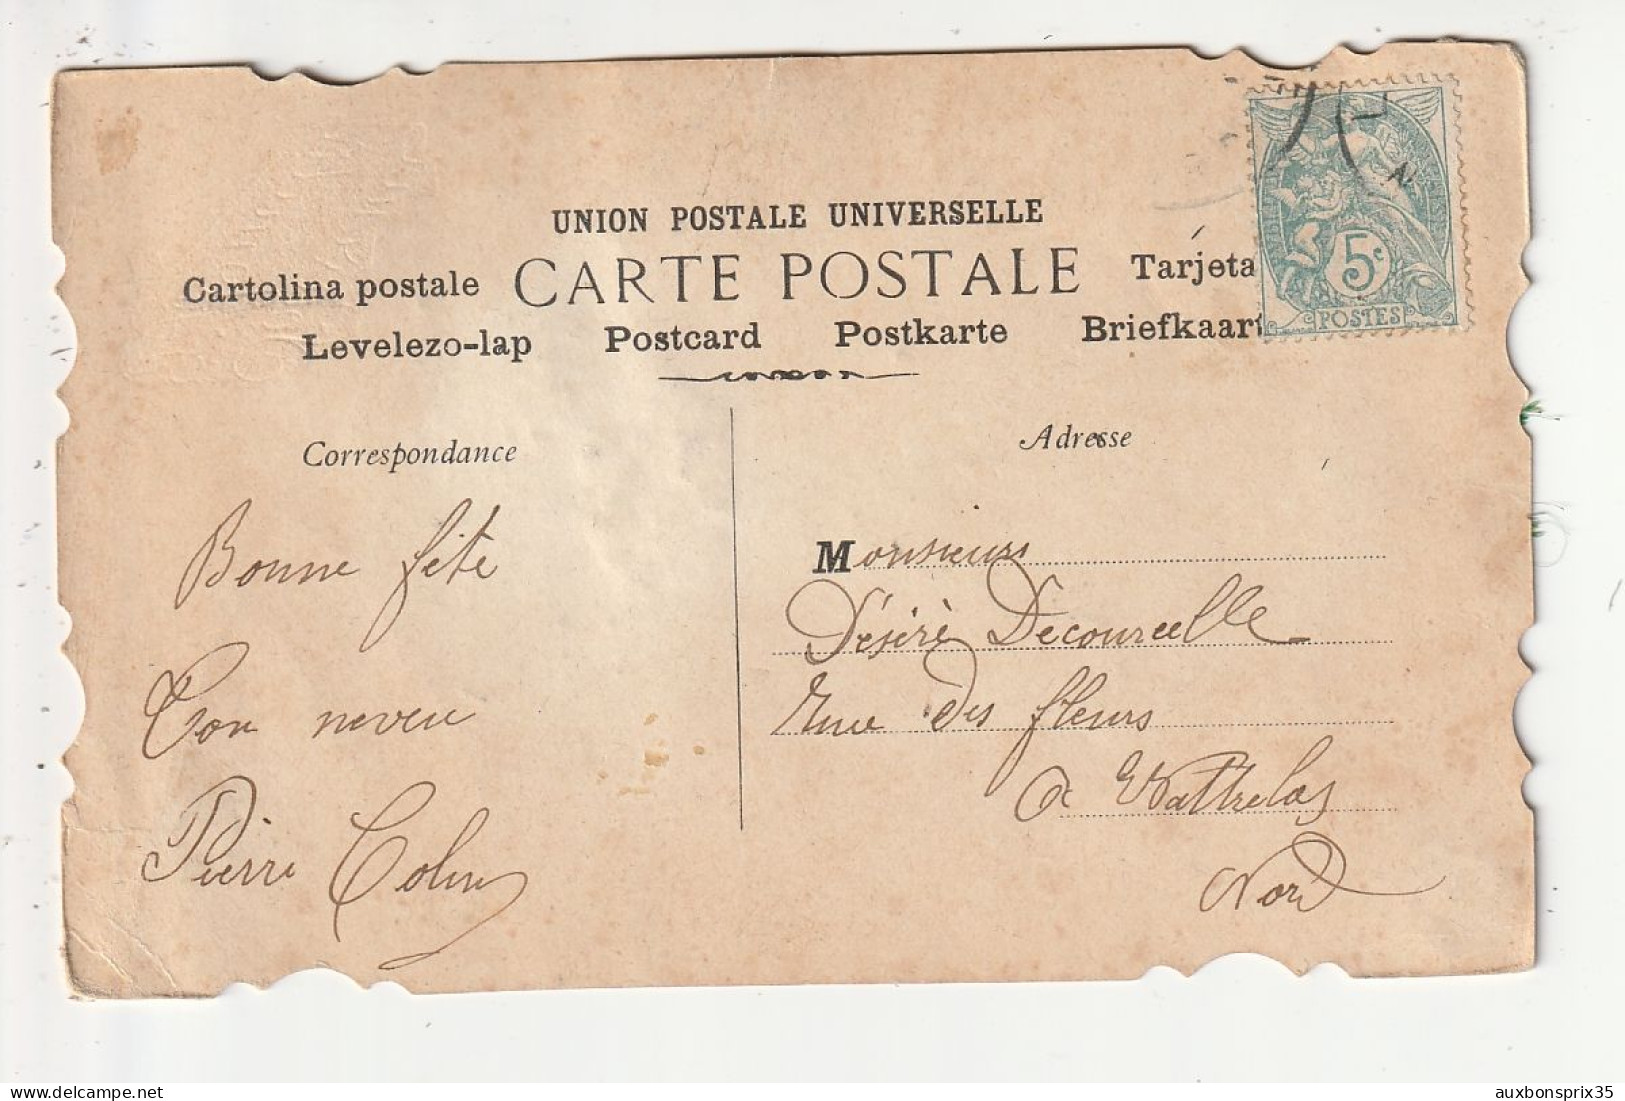 UNION POSTALE UNIVERSELLE
Cartolina postale CARTE POSTALE Tarjeta
Levelezo-lap Postcard Postkarte Briefkaart
5c
POSTES
Correspondance
Bonne fête
Ton neveu
Pierre Colin
Adresse
Monsieur
Désiré Decourcelle
Rue des fleurs
à Wattrelos
Nord
delcampe.net
auxbonsprix35